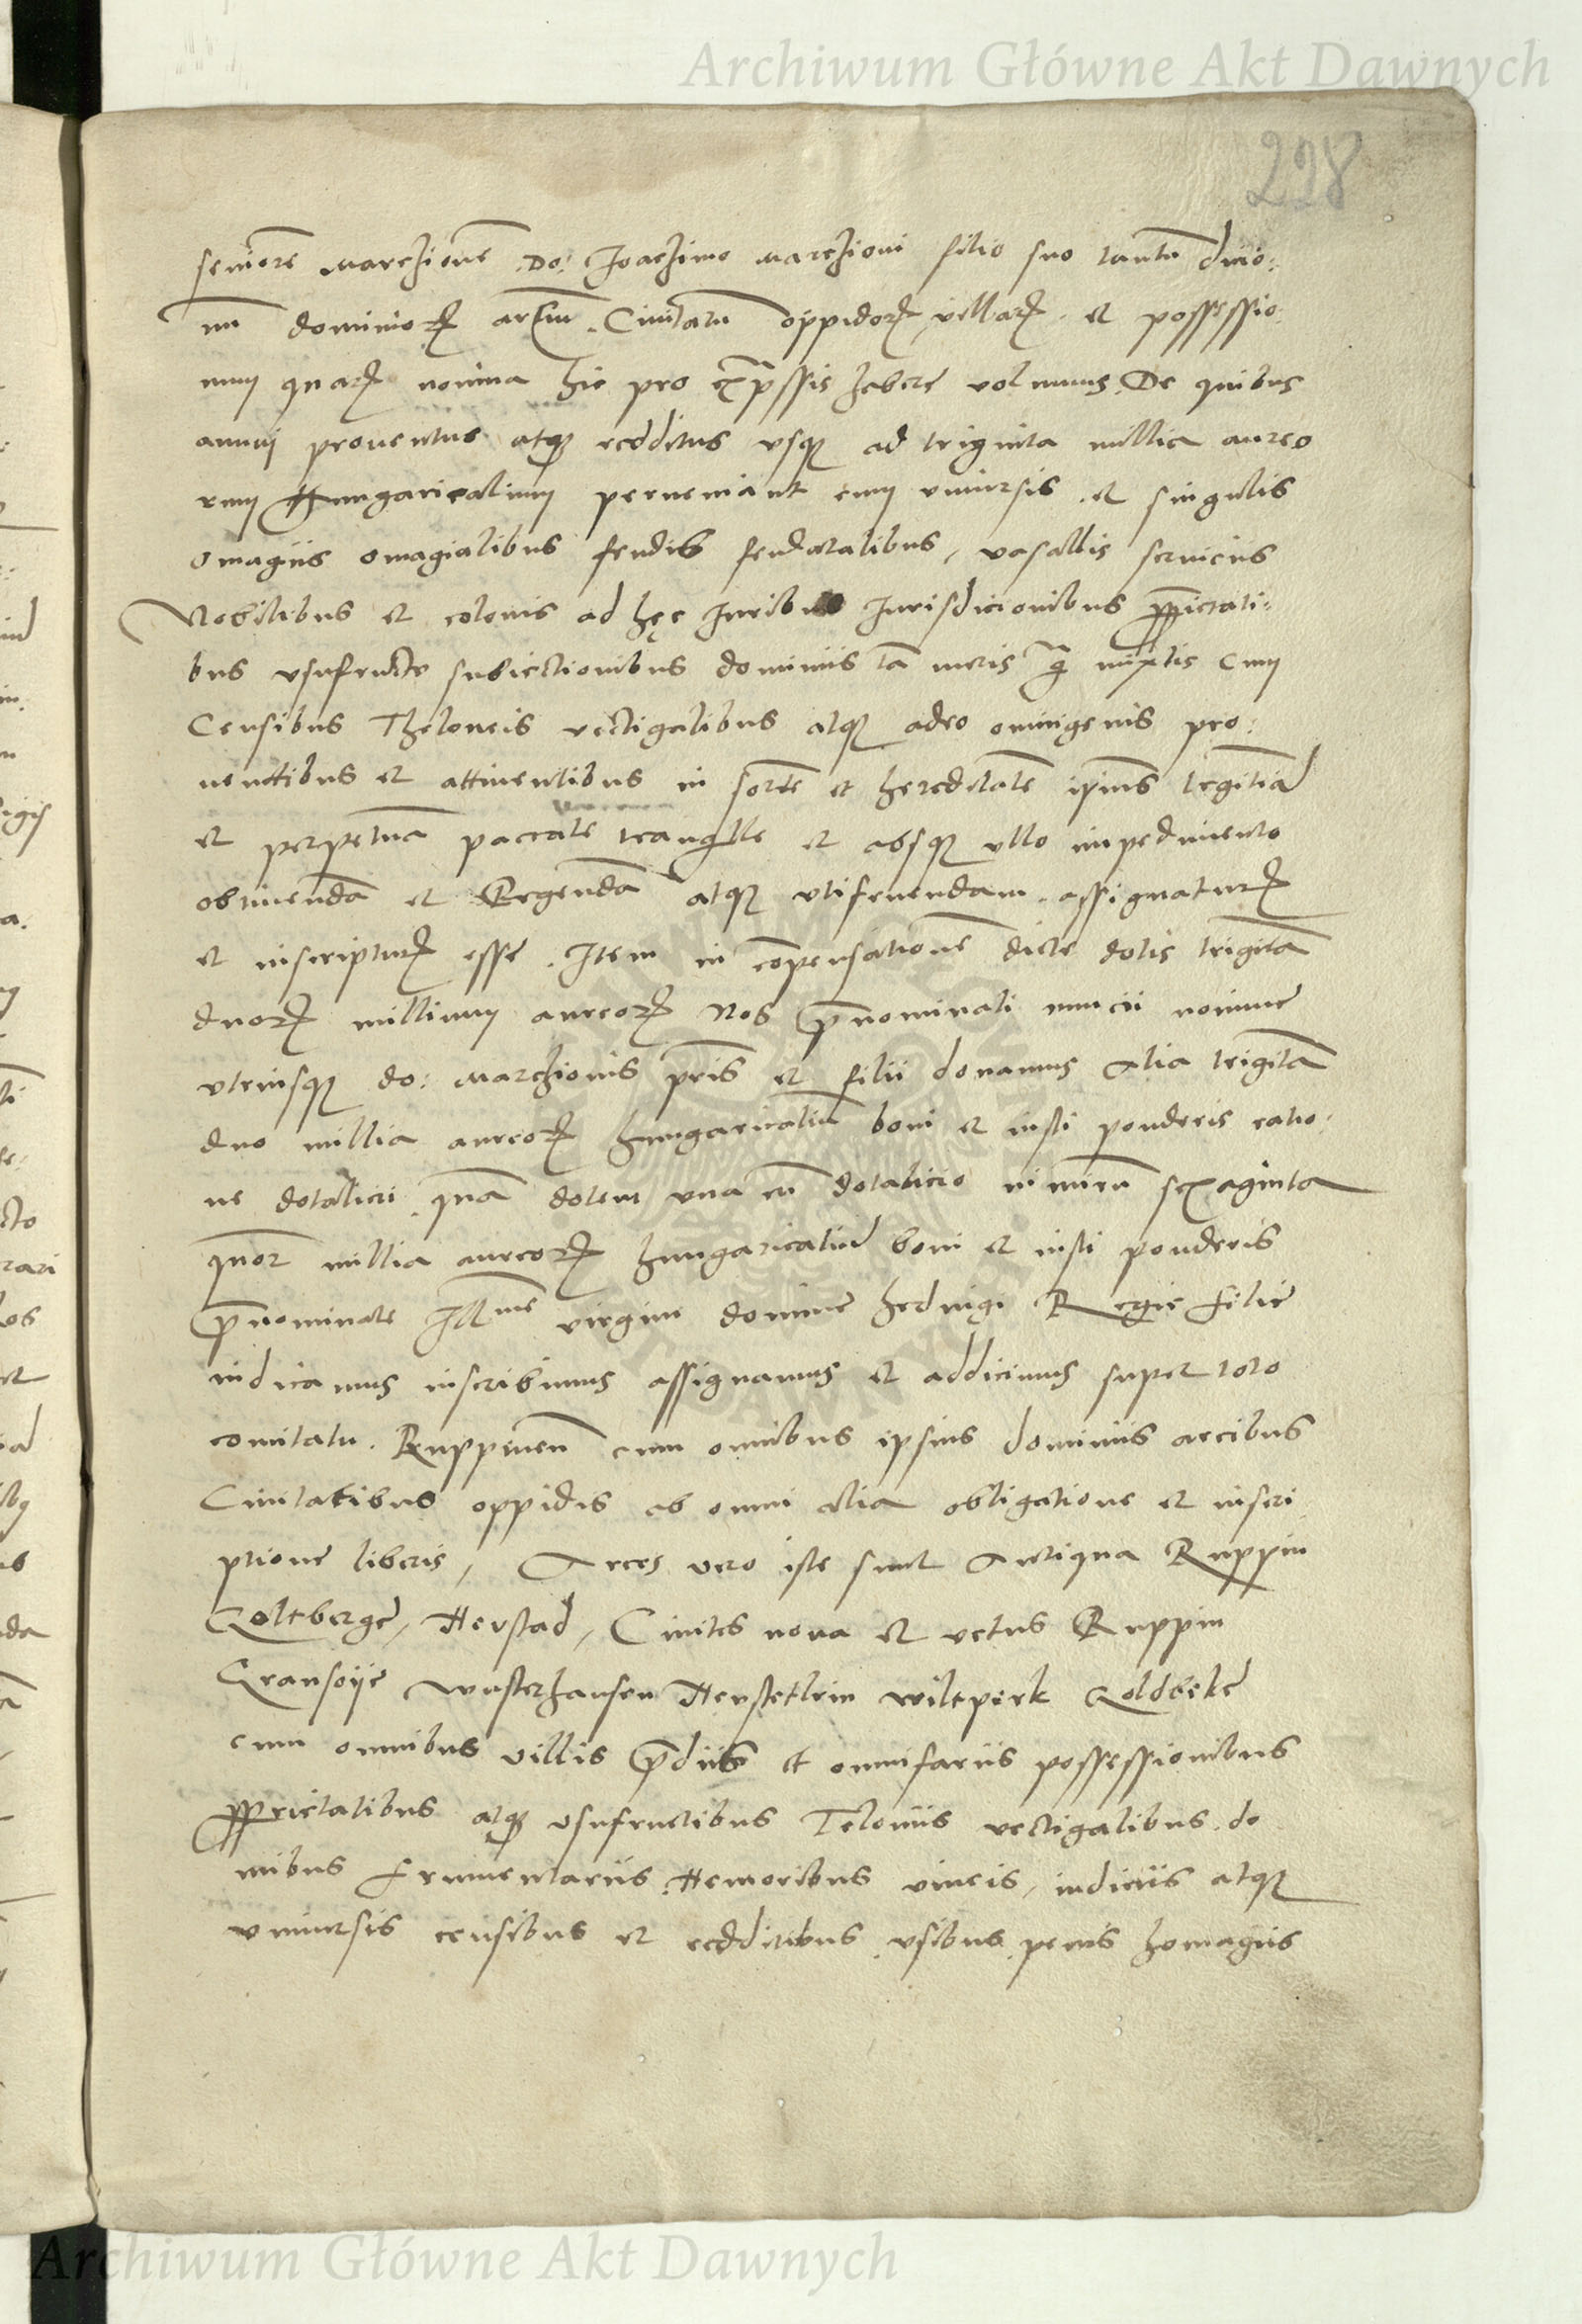 Archiwum Główne Akt Dawnych
228
seniorē marchionē Do: Joachimo marchioni filio suo tantū dicio:
nū dominioꝝ arciū. Ciuitatū oppidoꝝ villaꝝ et possessio:
num quaꝝ nomina hic pro exp̄ssis habere volumus. De quibus
annui prouentus atqꝫ redditus vsqꝫ ad triginta millia aureo
rum Hungaricalium perueniant cum vniuersis et singulis
omagiis omagialibus feudis feudatalibus, vasallis seruiciis
Nobilibus et colonis ad hęc Juribus Jurisdicionibus ꝓprietati:
bus vsufructe subiectionibus dominiis tā meris q̄ mixtis cum
Censibus Theloneis vectigalibus atqꝫ adeo omnigenis pro:
uentibus et attinentibus in sortē et hereditatē ipius legitimā
et perpetuā paccate tranquille et absqꝫ vllo impedimento
obtinendā et Regendā atqꝫ vtifruendam assignatuꝝ
et inscriptuꝝ esse. Item in cōpensationē dicte dotis trigītā
duoꝝ millium aureoꝝ Nos p̄nominati nuncii nomine
vtriusqꝫ do: marchionis pr̄is et filii donamus Alia trigītā
duo millia aureoꝝ hungaricaliū boni et iusti ponderis ratio:
ne dotalicii quā dotem vna cū dotalicio nimirū sexaginta
quor millia aureoꝝ hungaricaliū boni et iusti ponderis
p̄nominate Illme virgini domine hedwigi Regie filie
indicamus inscribimus assignamus et addicimus super toto
comitatu. Ruppinen̄ cum omnibus ipsius dominiis arcibus
Ciuitatibus oppidis ab omni alia obligatione et inscri:
ptione liberis, Arces vero iste sunt Antiqua Ruppin
Goltberge, Neustad, Ciuites noua et vetus Ruppin
Gransoije wusterhausen Neustetlein wiltperk Goldbeke
cum omnibus villis p̄diis et omnifariis possessionibus
ꝓprietatibus atqꝫ vsufructibus Teloniis vectigalibus. do
mibus frumentariis. Nemoribus vineis, iudiciis atqꝫ
vniuersis censibus et redditibus vsibus penis homagiis
Archiwum Główne Akt Dawnych